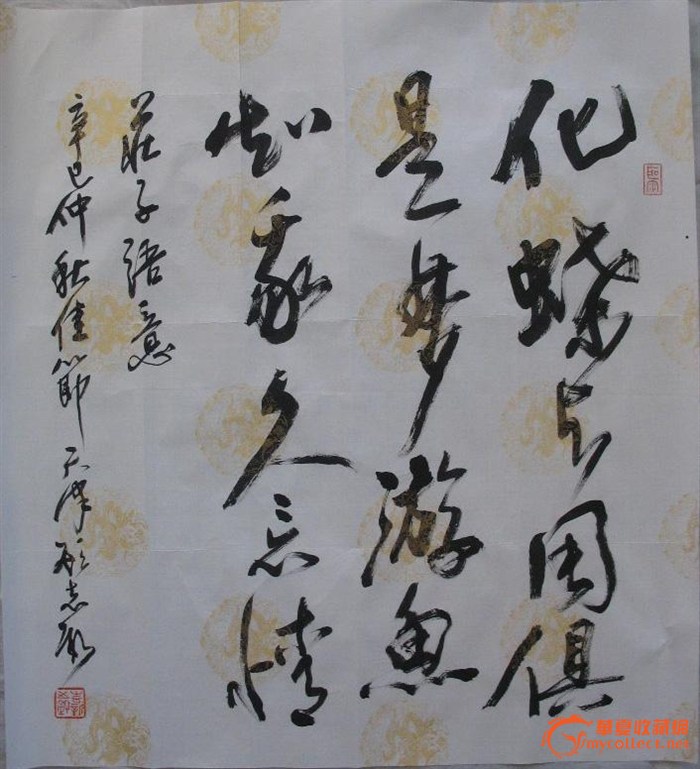 化蝶与周俱
是梦游鱼
知我久忘情
莊子语意
辛巳仲秋佳節天津 志
華夏收藏網
mycollect.net